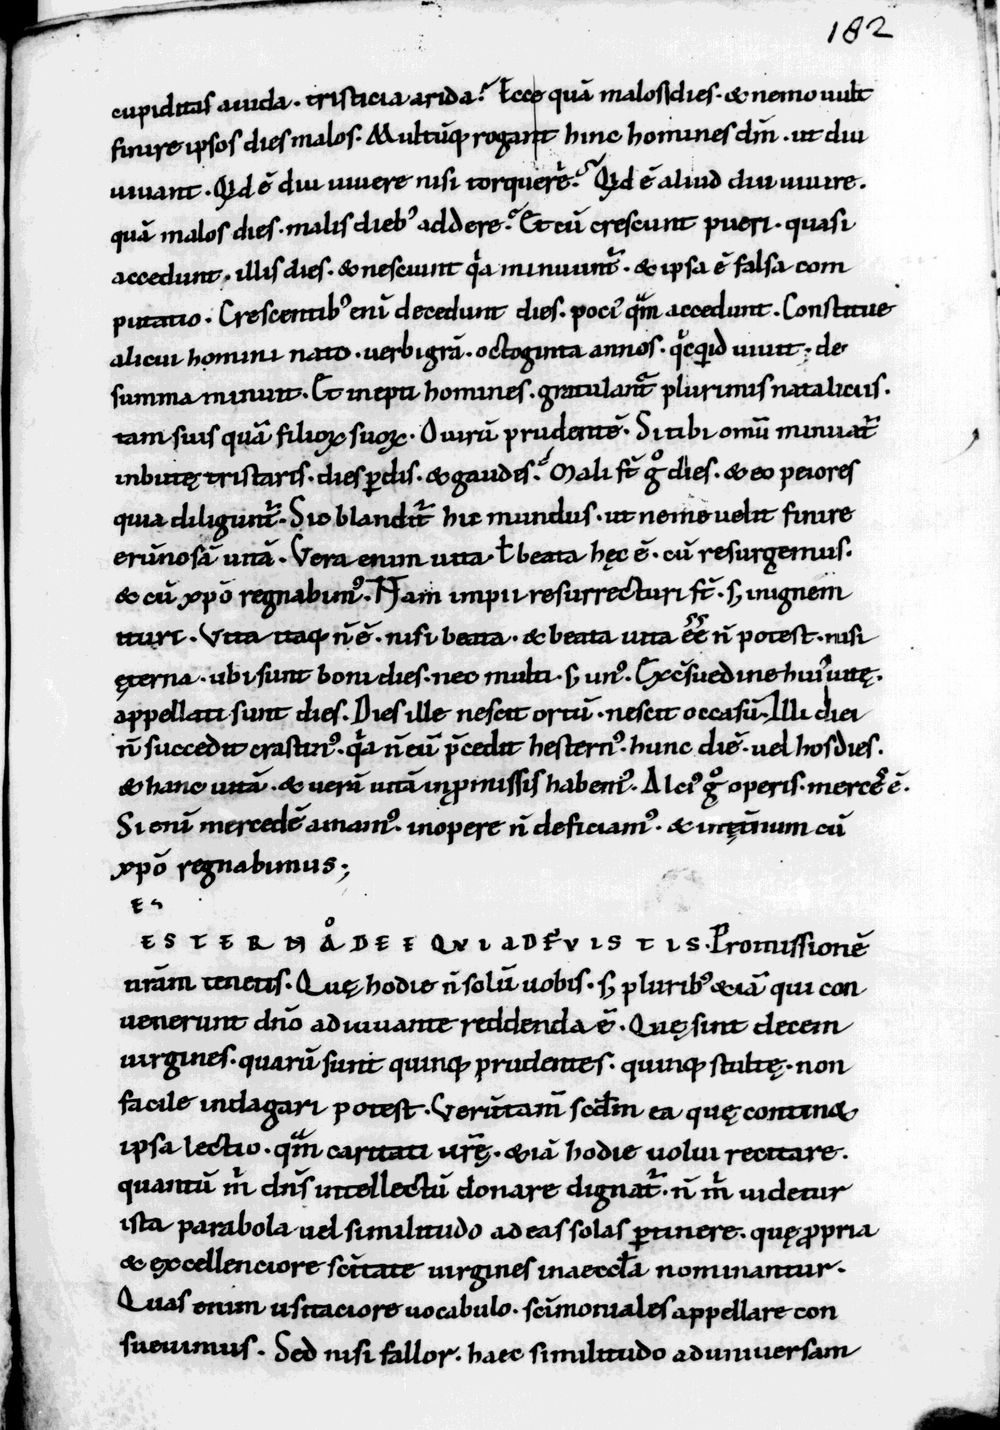 182
cupiditas auida · tristicia arida? Ecce quā malos dies · & nemo uult
finire ipsos dies malos · Multūq; rogant hinc homines dm̄ · ut diu
uiuant · Qd ē diu uiuere nisi torquere? Qd ē aliud diu uiuere ·
quā malos dies · malis dieb; addere? Et cū crescunt pueri · quasi
accedunt · illis dies · & nesciunt qa minuunt · & ipsa ē falsa com
putatio · Crescentib; eni decedunt dies · poci; qm̄ accedunt · Constitue
alicui homini nato · uerbi grā · octoginta annos · qcqid uiuit · de
summa minuit · Et inepti homines · gratulant plurimis nataliciis ·
tam suis quā filioꝝ suoꝝ · O uirū prudentē · Si tibi uinū minuat
in utre tristaris · dies pdis · & gaudes? Mali st̄ g dies · & eo peiores
quia diligunt · Sic blandit hic mundus · ut nemo uelit finire
erūnosā uitā · Vera enim uita ł beata hęc ē · cū resurgemus ·
& cū xpō regnabim; · Nam impii resurrecturi st̄ · s; in ignem
ituri · Vita itaq; n̄ ē · nisi beata · & beata uita ēē n̄ potest · nisi
ęterna · ubi sunt boni dies · nec multi · s; un; · Ex sue dine hui; uitę ·
appellati sunt dies · Dies ille nescit ortū · nescit occasū · Illi diei
n̄ succedit crastin; · qa n̄ eū p̄cedit hestern; · hunc diē · uel hos dies ·
& hanc uitā · & uerā uitā in pmissis habem; · Alci; g operis · merces ē ·
Si eni mercedē amam; · in opere n̄ deficiam; · & in ęt̄num cū
xpō regnabimus ;
ESTERNA DEE QUI ADFUISTIS · Promissionē
nr̄am tenetis · Quę hodie n̄ solū uobis · s; plurib; & iā qui con
uenerunt dn̄o adiuuante reddenda ē · Quę sint decem
uirgines · quarū sunt quinq; prudentes · quinq; stultę · non
facile indagari potest · Verūtam̄ scdm ea quę contin&
ipsa lectio · qm̄ caritati ur̄ę · & iā hodie uolui recitare ·
quantū m̄ dn̄s intellectū donare dignat · n̄ m̄ uidetur
ista parabola uel similitudo ad eas solas ptinere · quę ppria
& excellenciore sc̄itate uirgines in aeccła nominantur ·
Quas enim usitaciore uocabulo · sc̄imoniales appellare con
sueuimus · Sed nisi fallor · haec similitudo ad uniuersam